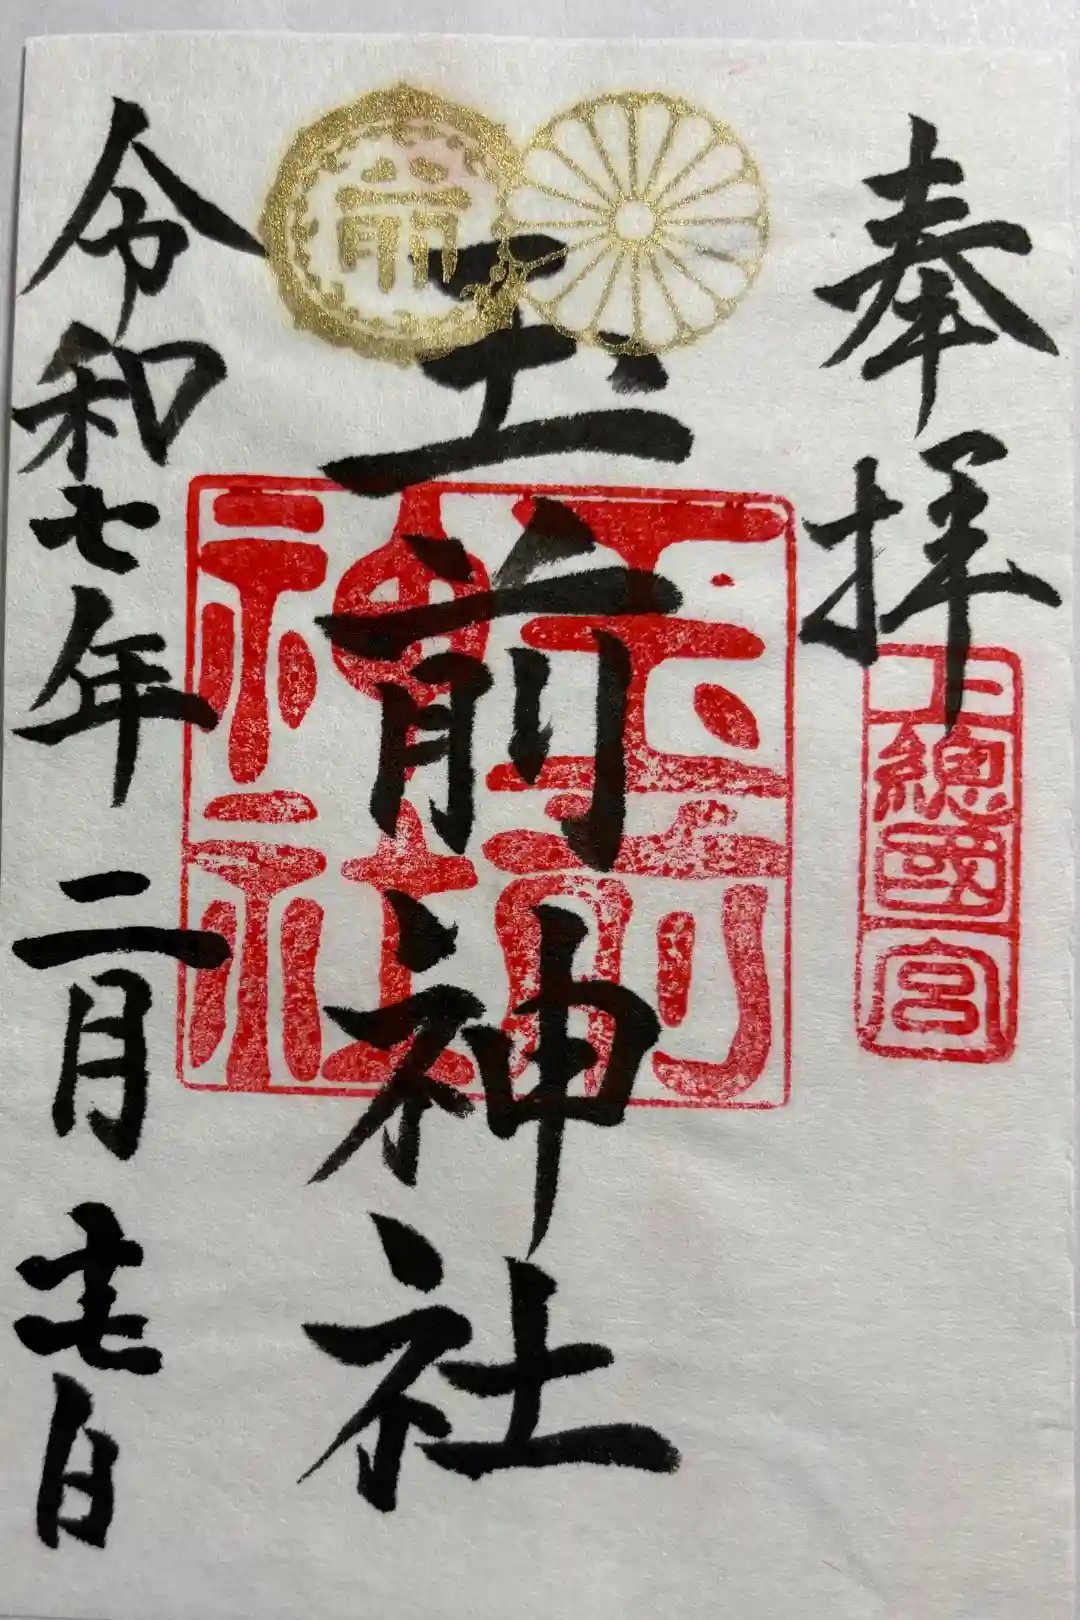 奉拝
上總國一宮
玉前神社
玉前神社
令和七年二月十七日